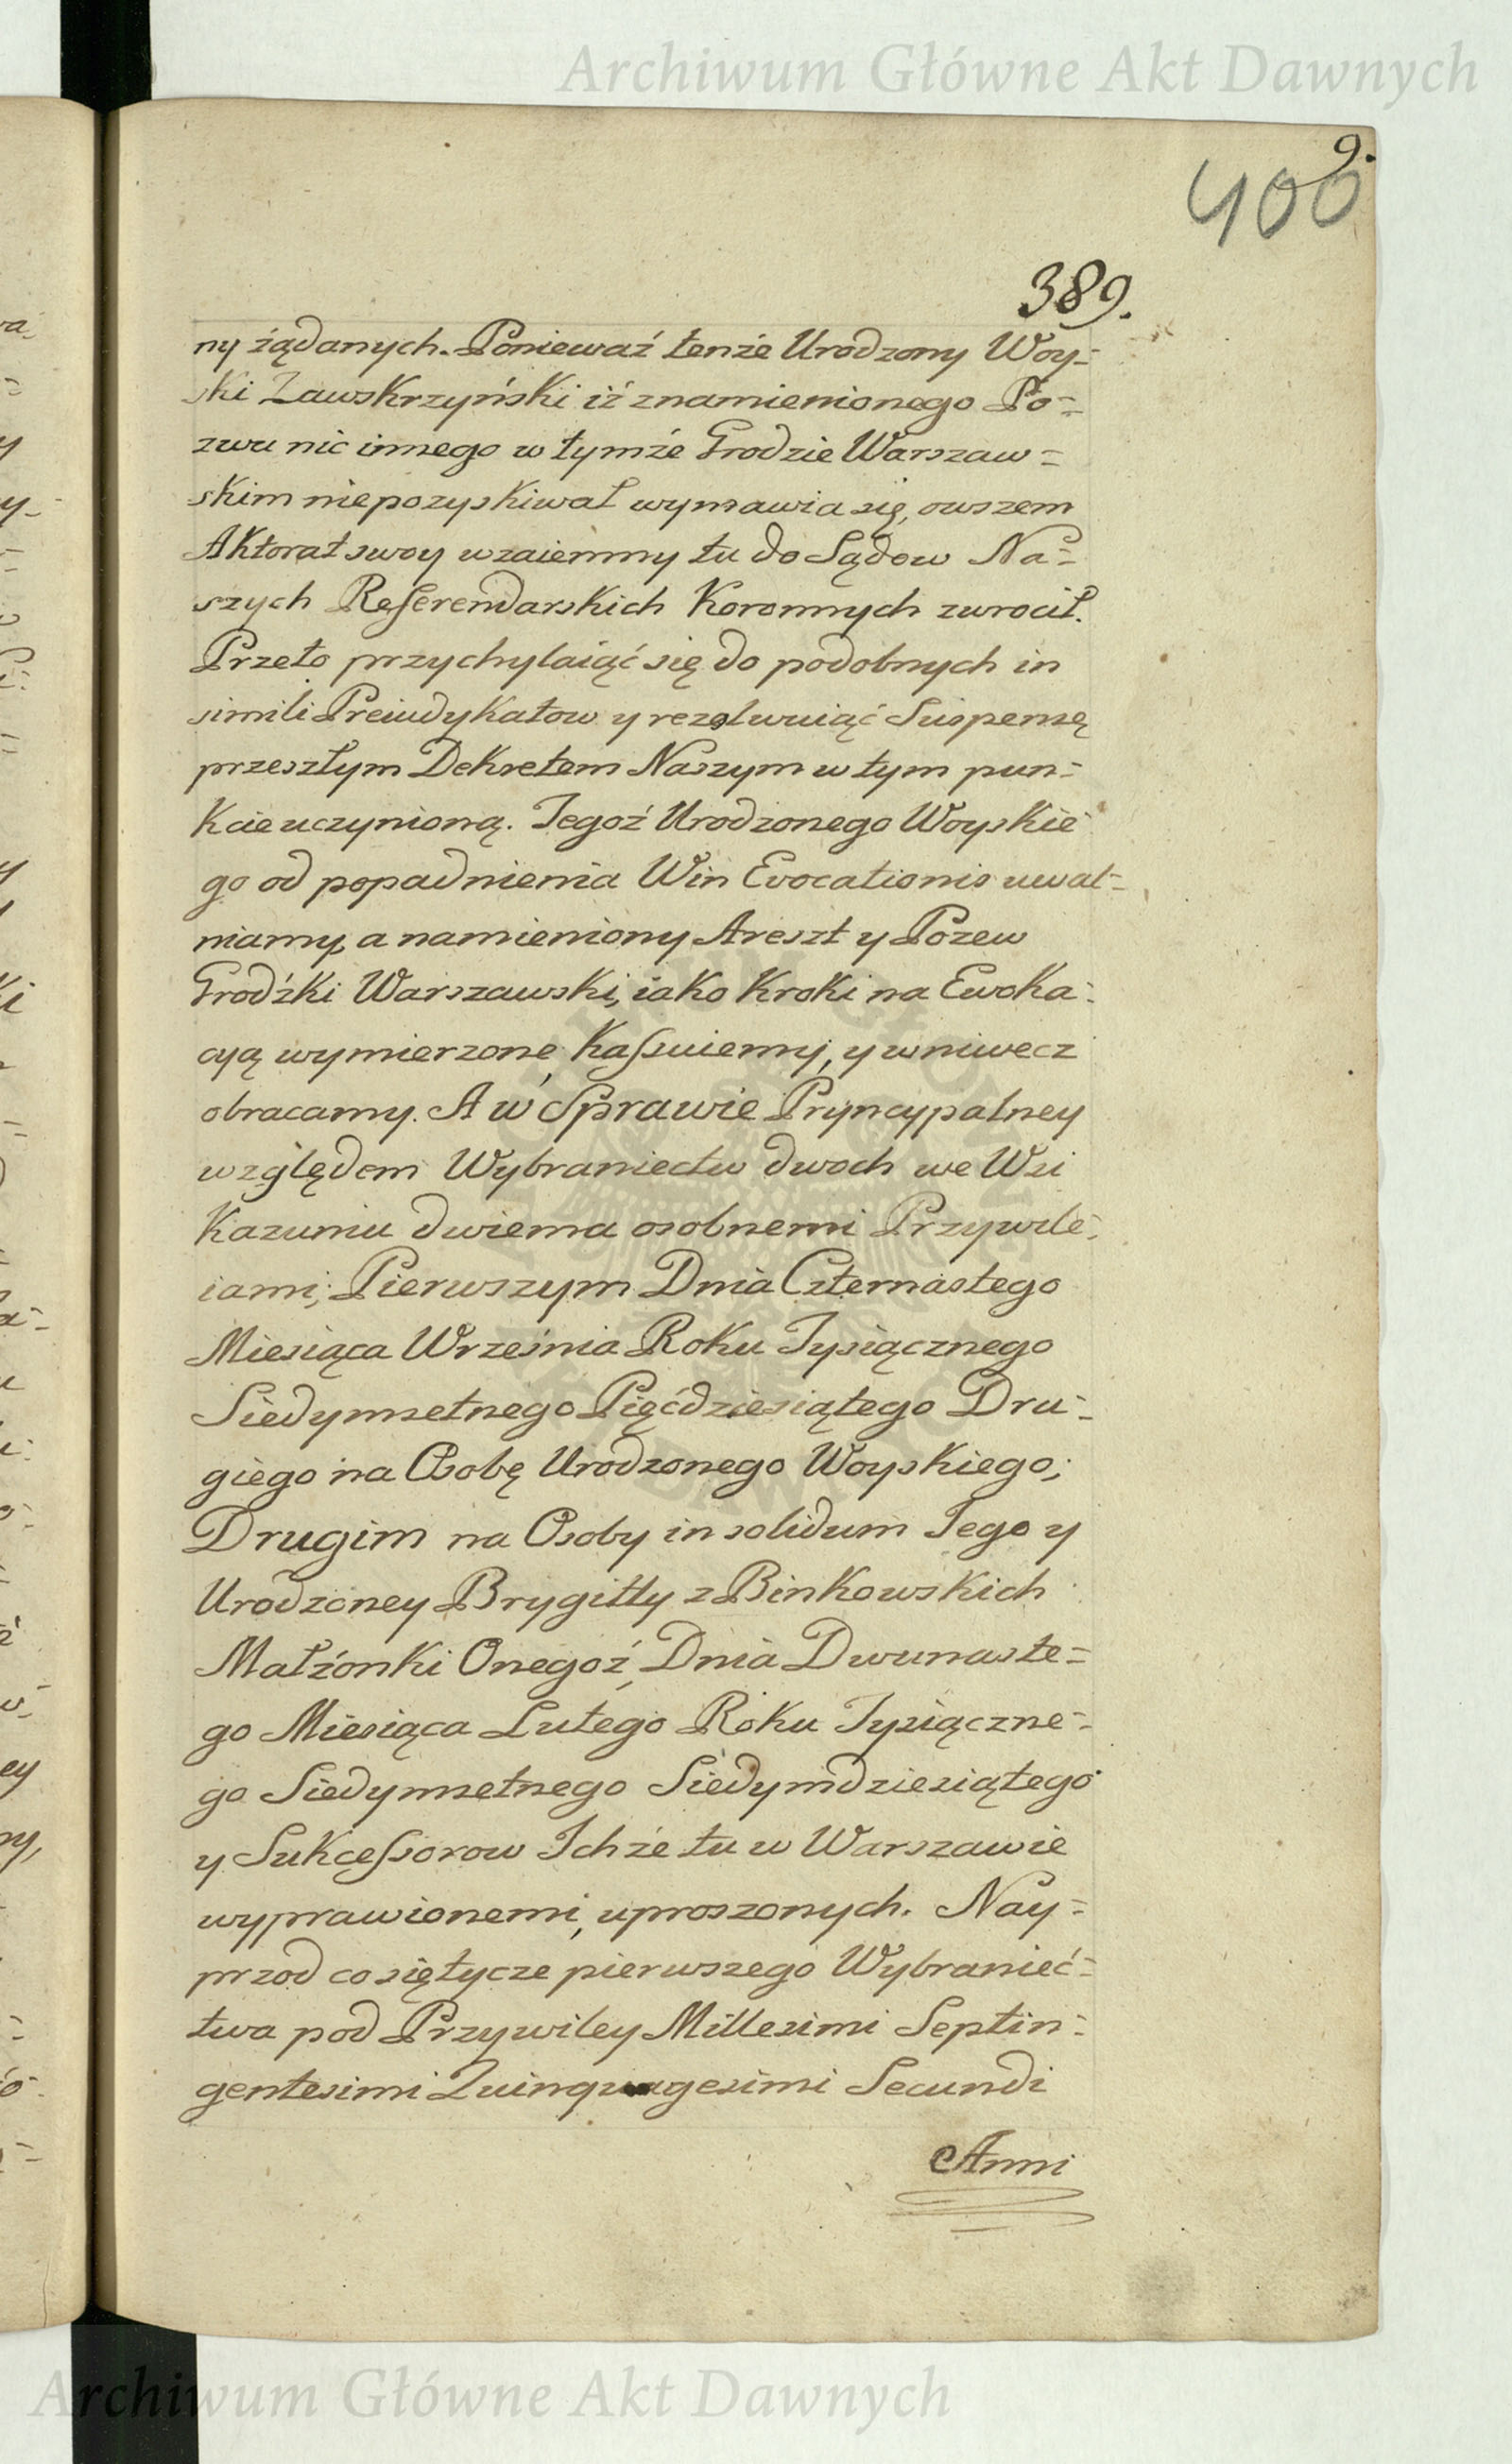 Archiwum Główne Akt Dawnych
9.
400
389.
ny żądanych. Ponieważ tenże Urodzony Woy=
ski Zawskrzyński iż znamienionego Po=
zwu nic innego w tymże Grodzie Warszaw=
skim niepozyskiwał wymawia się, owszem
Aktorat swoy wzaiemny tu do Sądow Na=
szych Referendarskich Koronnych zwrocił.
Przeto przychylaiąć się do podobnych in
simili Preiudykatow y rezolwuiąć Suspensę
przeszłym Dekretem Naszym w tym pun=
kcie uczynioną. Tegoż Urodzonego Woyskie
go od popadnienia Win Evocationis uwal=
niamy, a namieniony Areszt y Pozew
Grodźki Warszawski, iako kroki na Ewoka=
cyą wymierzone, kassuiemy, y wniwecz
obracamy. A w Sprawie Pryncypalney
względem Wybraniectw dwoch we Wsi
Kazuniu dwiema osobnemi Przywile=
iami; Pierwszym Dnia Czternastego
Miesiąca Września Roku Tysiącznego
Siedymsetnego Pięćdziesiątego Dru=
giego na Osobę Urodzonego Woyskiego;
Drugim na Osoby in solidum Tego y
Urodzoney Brygitty z Binkowskich
Małżonki Onegoż, Dnia Dwunaste=
go Miesiąca Lutego Roku Tysiączne=
go Siedymsetnego Siedymdziesiątego
y Sukcessorow Ichże tu w Warszawie
wyprawionemi, uproszonych. Nay=
przod co się tycze pierwszego Wybranieć=
twa pod Przywiley Millesimi Septin=
gentesimi Quinquagesimi Secundi
Anni
Archiwum Główne Akt Dawnych